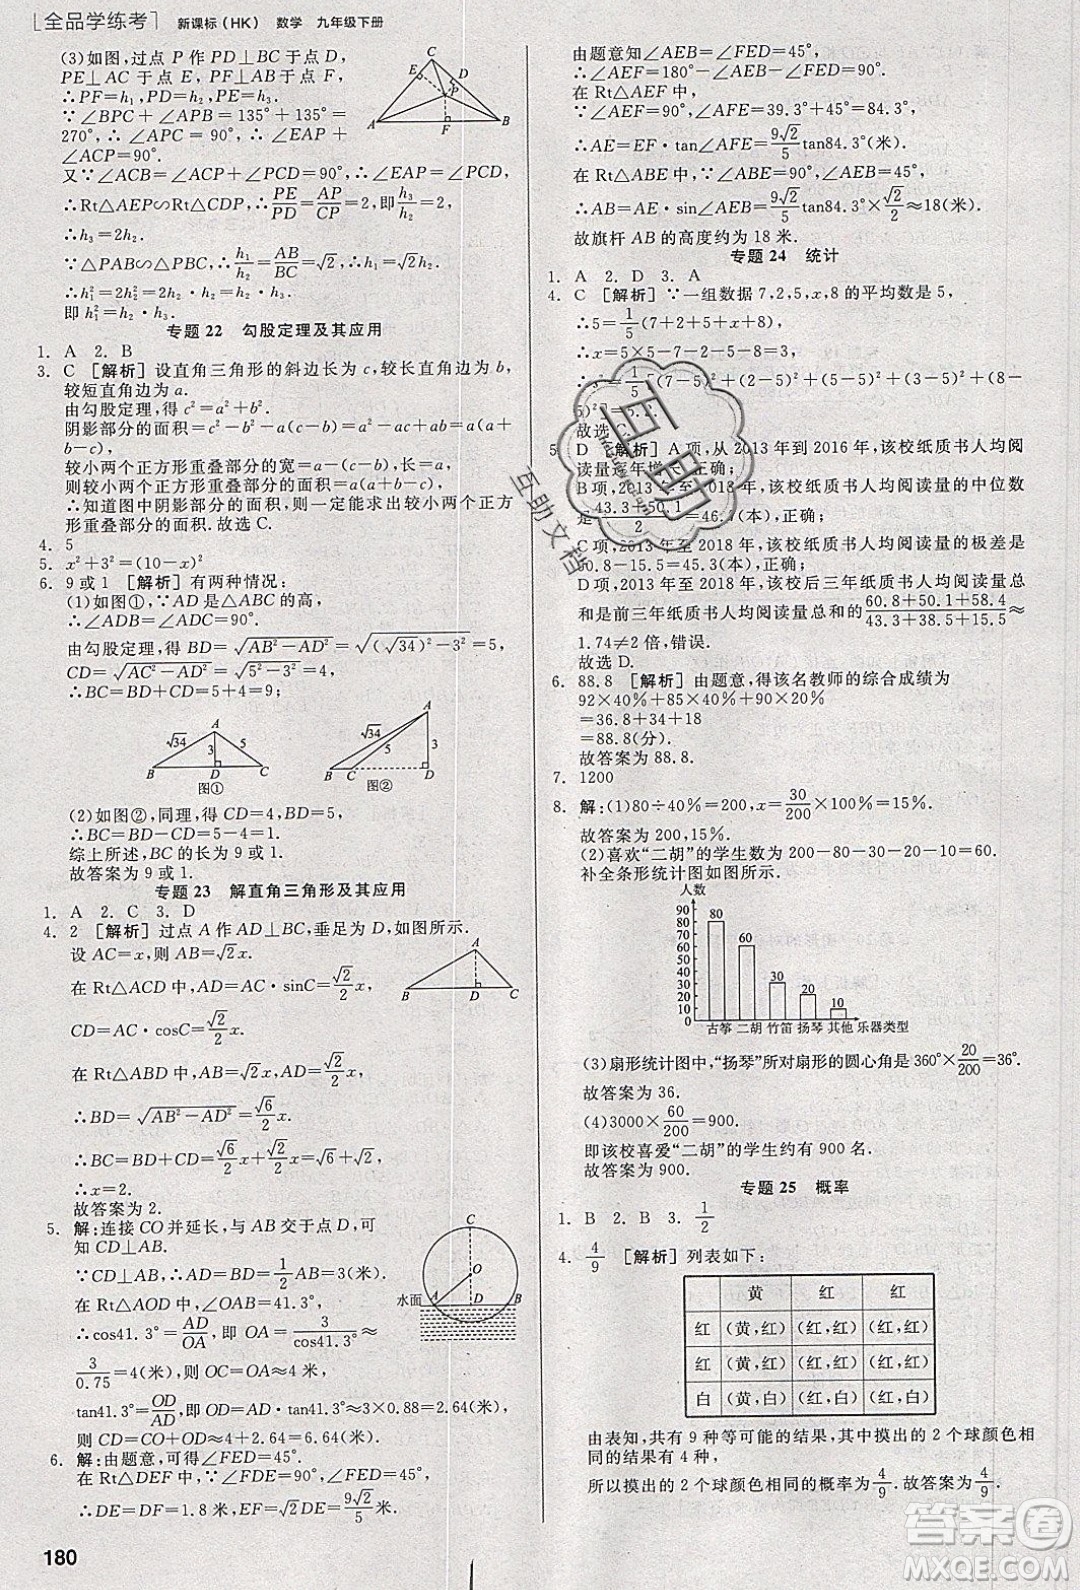 [全品学练考] 新课标(HK) 数学 九年级下册
(3)如图,过点 P 作 PD⊥BC 于点 D,
PE⊥AC 于点 E,
∴PF=h₁,PD=h₂,PE=h₃.
∵∠BPC+∠APB=135°+135°=
270°,∴∠APC=90°,∴∠EAP+
∠ACP=90°.
又∵∠ACB=∠ACP+∠PCD=90°,∴∠EAP=∠PCD,
∴Rt△AEP∽Rt△CDP,∴PE/PD=AP/PC=2,即h₃/h₂=2,
∴h₃=2h₂.
∵△PAB∽△PBC,∴h₁/h₂=AB/BC=√2,∴h₁=√2h₂.
∴h₁²=2h₂²=2h₂·h₂=h₂h₃.
即 h₁²=h₂·h₃.
C
E
D
P
A
F
B
专题 22 勾股定理及其应用
1. A 2. B
3. C [解析] 设直角三角形的斜边长为 c,较长直角边为 b,
较短直角边为 a.
由勾股定理,得 c²=a²+b².
阴影部分的面积=c²-b²-a(c-b)=a²-ac+ab=a(a+
b-c).
较小两个正方形重叠部分的宽=a-(c-b),长=a,
则较小两个正方形重叠部分的面积=a(a+b-c),
∴知道图中阴影部分的面积,则一定能求出较小两个正方
形重叠部分的面积.故选 C.
4. 5
5. x²+3²=(10-x)²
6. 9 或 1 [解析] 有两种情况:
(1)如图①,∵AD 是△ABC 的高,
∴∠ADB=∠ADC=90°.
由勾股定理,得 BD=√(AB²-AD²)=√((√34)²-3²)=5,
CD=√(AC²-AD²)=√(5²-3²)=4,
∴BC=BD+CD=5+4=9;
A
√34
3
5
B D C
图①
A
√34
5
3
B C D
图②
(2)如图②,同理,得 CD=4,BD=5,
∴BC=BD-CD=5-4=1.
综上所述,BC 的长为 9 或 1.
故答案为 9 或 1.
专题 23 解直角三角形及其应用
1. A 2. C 3. D
4. 2 [解析] 过点 A 作 AD⊥BC,垂足为 D,如图所示.
设 AC=x,则 AB=√2x.
在 Rt△ACD 中,AD=AC·sinC=√2/2x,
CD=AC·cosC=√2/2x.
在 Rt△ABD 中,AB=√2x,AD=√2/2x,
∴BD=√(AB²-AD²)=√6/2x,
∴BC=BD+CD=√6/2x+√2/2x=√6+√2,
∴x=2.
故答案为 2.
A
B D C
5. 解:连接 CO 并延长,与 AB 交于点 D,可
知 CD⊥AB.
∵CD⊥AB,∴AD=1/2AB=3(米).
在 Rt△AOD 中,∠OAB=41.3°,
∴cos41.3°=AD/OA,即 OA=3/cos41.3°≈
3/0.75=4(米),则 OC=OA=4(米).
tan41.3°=OD/AD,即 OD=AD·tan41.3°≈3×0.88=2.64(米),
则 CD=CO+OD≈4+2.64=6.64(米).
C
O
水面 A D B
6. 解:由题意,可得∠FED=45°.
在 Rt△DEF 中,∵∠FDE=90°,∠FED=45°,
∴DE=DF=1.8 米,EF=√2DE=9√2/5(米).
180
由题意知∠AEB=∠FED=45°,
∴∠AEF=180°-45°-45°=90°.
在 Rt△AEF 中,
∵∠AEF=90°,∠AFE=39.3°+45°=84.3°,
∴AE=EF·tan∠AFE≈9√2/5tan84.3°(米).
在 Rt△ABE 中,∵∠ABE=90°,∠AEB=45°,
∴AB=AE·sin∠AEB≈9√2/5tan84.3°×√2/2≈18(米).
故旗杆 AB 的高度约为 18 米.
专题 24 统计
1. A 2. D 3. A
4. C [解析] ∵一组数据 7,2,5,x,8 的平均数是 5,
∴5=1/5(7+2+5+x+8),
∴x=5×5-7-2-5-8=3,
∴s²=1/5[(7-5)²+(2-5)²+(5-5)²+(3-5)²+(8-
5)²]=5.2.
故选 C.
5. D [解析] A 项,从 2013 年到 2016 年,该校纸质书人均阅
读量逐年增长,正确;
B 项,2013 年至 2018 年,该校纸质书人均阅读量的中位数
是(43.3+50.1)/2=46.7(本),正确;
C 项,2013 年至 2018 年,该校纸质书人均阅读量的极差是
60.8-15.5=45.3(本),正确;
D 项,2013 年至 2018 年,该校后三年纸质书人均阅读量总
和是前三年纸质书人均阅读量总和的(60.8+50.1+58.4)/(43.3+38.6+15.5)≈
1.74≠2 倍,错误.
故选 D.
6. 88.8 [解析] 由题意,得该名教师的综合成绩为
92×40%+85×40%+90×20%
=36.8+34+18
=88.8(分).
故答案为 88.8.
7. 1200
8. 解:(1)80÷40%=200,x=30/200×100%=15%.
故答案为 200,15%.
(2)喜欢“二胡”的学生数为 200-80-30-20-10=60.
补全条形统计图如图所示.
人数
90
80
70
60
50
40
30
20
10
0
80
60
30
20
10
古筝 二胡 竹笛 扬琴 其他 乐器类型
(3)扇形统计图中,“扬琴”所对扇形的圆心角是 360°×20/200=36°.
故答案为 36.
(4)3000×60/200=900.
即该校喜爱“二胡”的学生约有 900 名.
故答案为 900.
专题 25 概率
1. B 2. B 3. 1/2
4. 4/9 [解析] 列表如下:
黄 红 红
红 (黄,红) (红,红) (红,红)
红 (黄,红) (红,红) (红,红)
白 (黄,白) (红,白) (红,白)
由表知,共有 9 种等可能的结果,其中摸出的 2 个球颜色相
同的结果有 4 种,
所以摸出的 2 个球颜色相同的概率为4/9.故答案为4/9.
互助
互助文档
答案圈
MXQE.COM